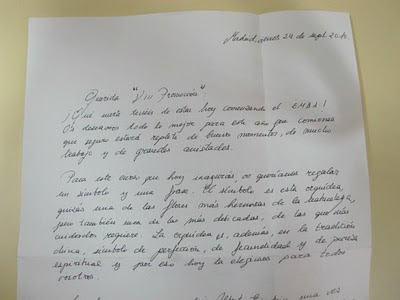 Madrid, 24 de sept. 20
Querida "VIII Promoción":
¡Qué suerte tenéis de estar hoy comenzando el EMBA!
Os deseamos todo lo mejor para este año que comienza
que seguro estará repleto de buenos momentos, de mucho
trabajo y de grandes amistades.
Para este curso que hoy inauguráis, os queríamos regalar
un símbolo y una frase. El símbolo es esta orquídea,
quizás una de las flores más hermosas de la naturaleza,
pero también una de las más delicadas, de las que más
cuidados requiere. La orquídea es, además, en la tradición
china, símbolo de perfección, de fecundidad y de pureza
espiritual y por eso hoy la elegimos para todos
vosotros.
una vez